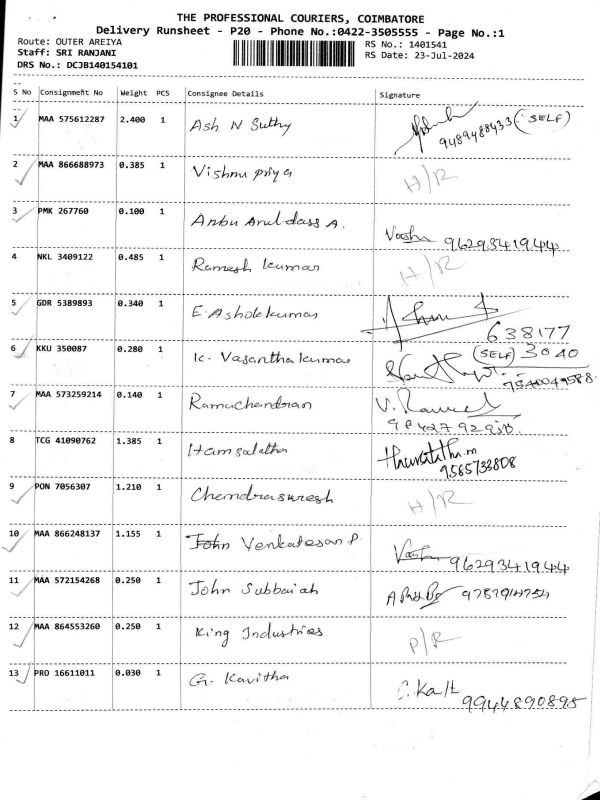 THE PROFESSIONAL COURIERS, COIMBATORE
Delivery Runsheet - P20 - Phone No.:0422-3505555 - Page No.:1
Route: OUTER AREIYA RS No.: 1401541
Staff: SRI RANJANI RS Date: 23-Jul-2024
DRS No.: DCJB140154101
S No Consignment No Weight PCS Consignee Details Signature
1 MAA 575612287 2.400 1 Ash N Suthy (SELF)
9489488433
2 MAA 866688973 0.385 1 Vishnu priya H/R
3 PMK 267760 0.100 1 Anbu Arul dass A.
9629341944
4 NKL 3409122 0.485 1 Ramesh kumar H/R
5 GDR 5389893 0.340 1 E. Ashokkumar
638177
6 KKU 350087 0.280 1 K. Vasantha kumar (SELF) 3040
7 MAA 573259214 0.140 1 Ramachandran
8 TCG 41090762 1.385 1 Hamsalatha
9585733808
9 PON 7056307 1.210 1 Chandrasuresh H/R
10 MAA 866248137 1.155 1 John Venkatesan P
9629341944
11 MAA 572154268 0.250 1 John Subbaiah
12 MAA 864553260 0.250 1 King Industries P/R
13 PRO 16611011 0.030 1 G. Kavitha
9944890895